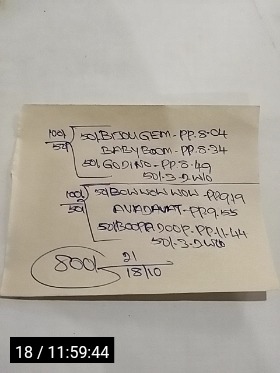 100/ 50/ BIJOU GEM - PP. 8-04
50/ BABY BOOM - PP. 8-34
50/ GODINO - PP. 8-49
50/-3-D.W/O
100/ 50/ BOW WOW WOW - PP9-19
50/ AVADAVAT - PP. 9-55
50/ BOOPADOOP. PP. 11-44
50/-3-D.W/O
800/- 21
18/10
18 / 11:59:44